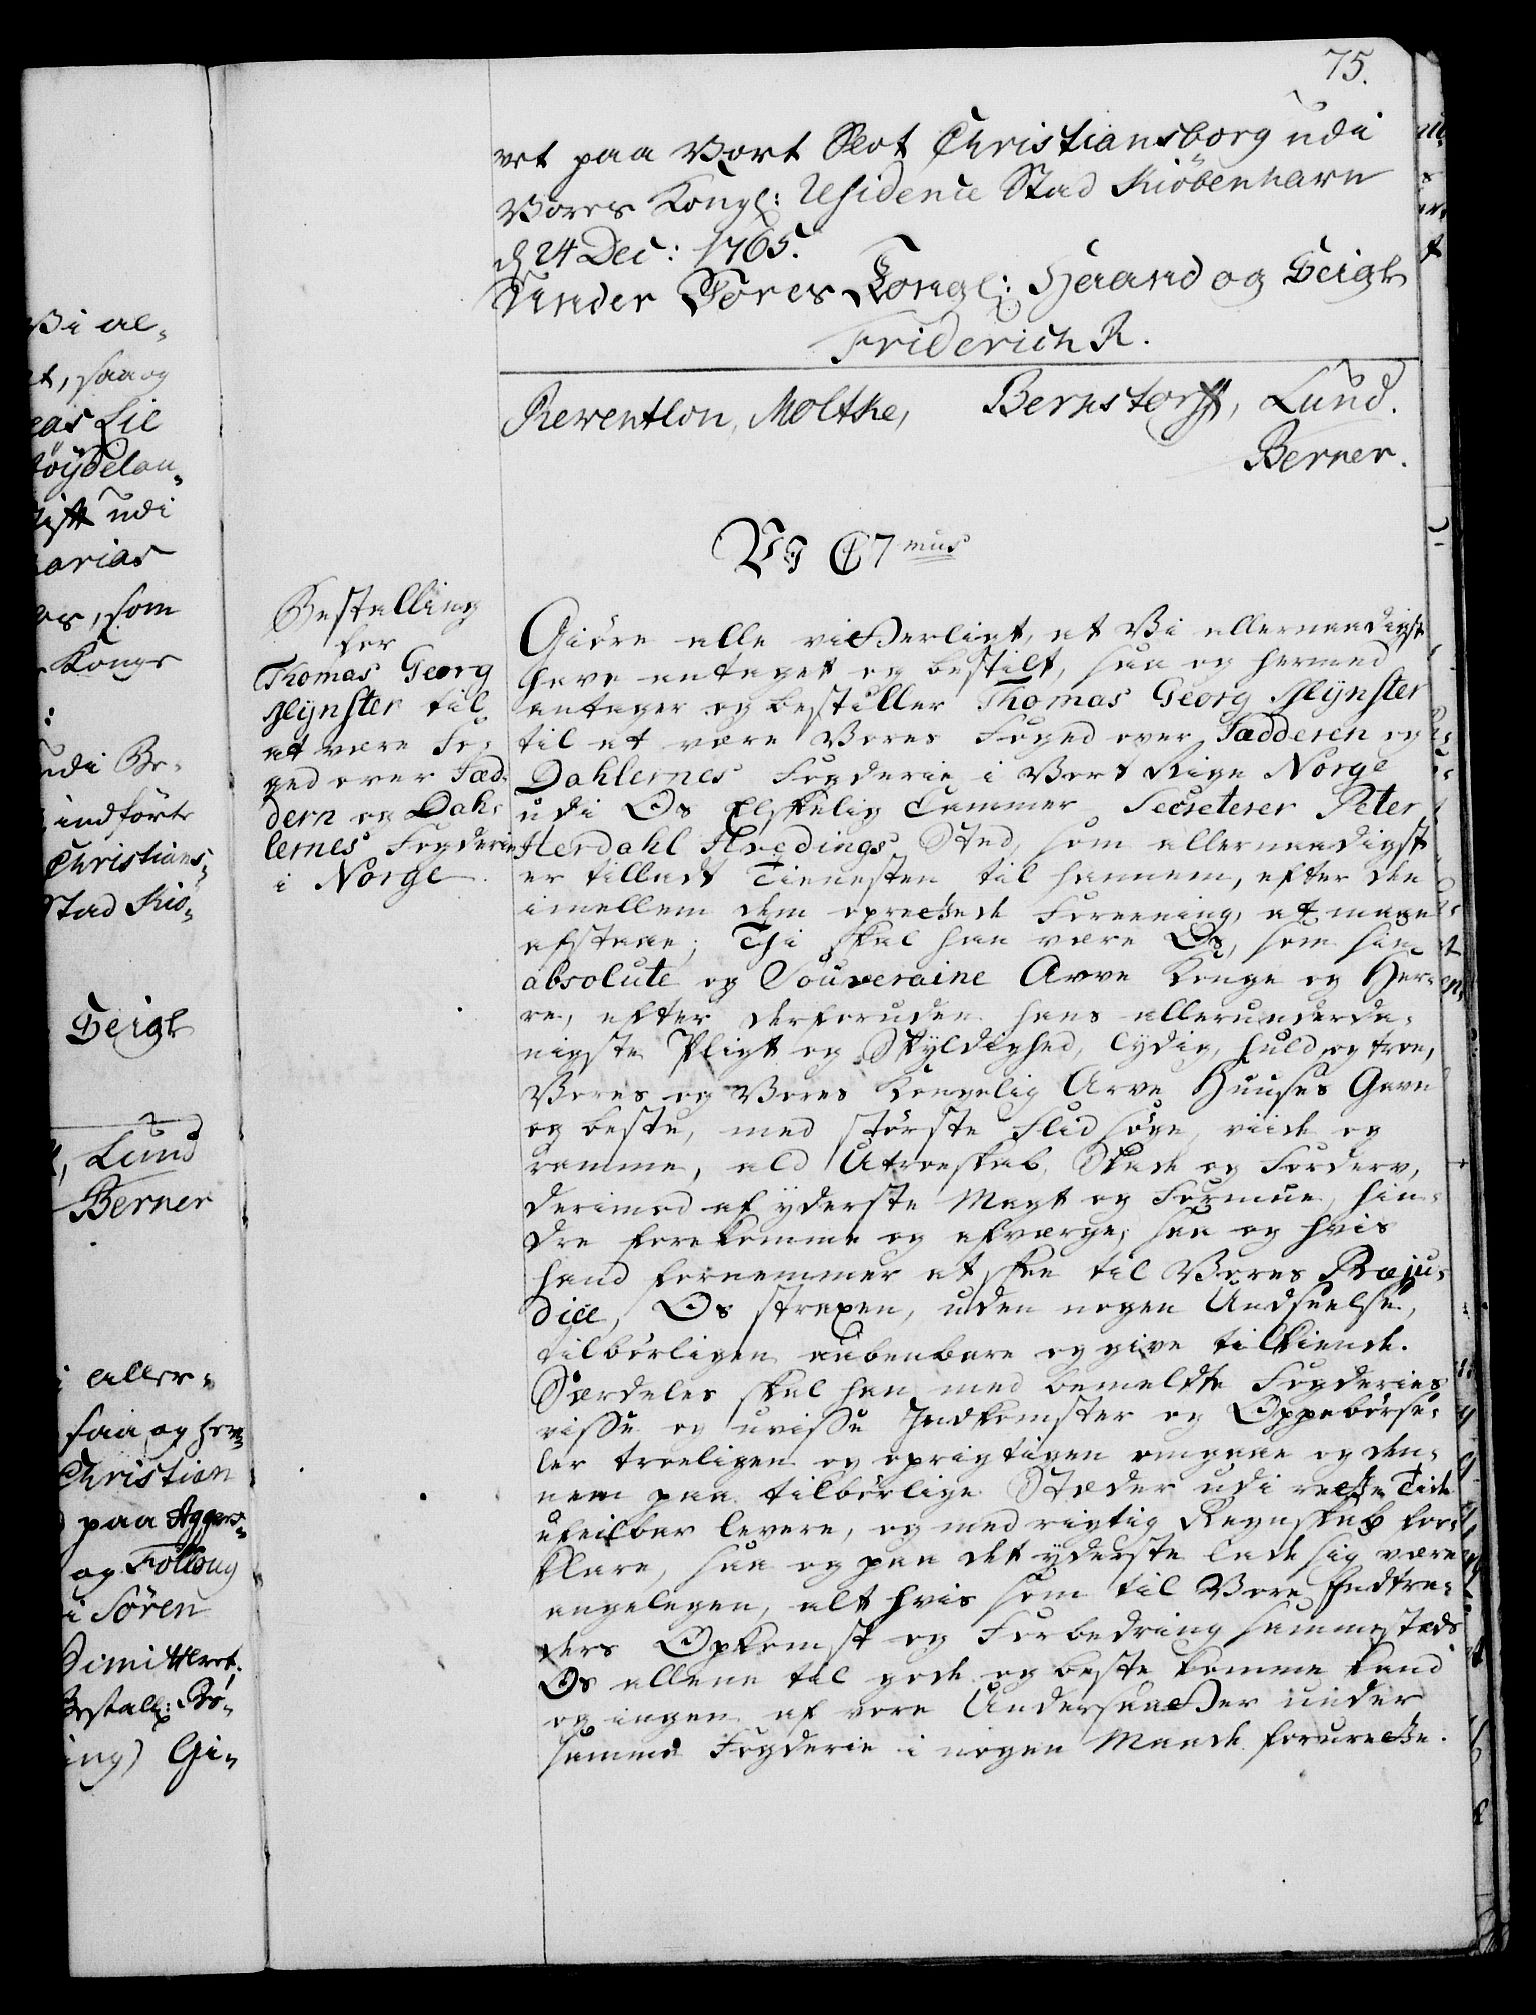 75.
vet paa Vort Slot Christiansborg udi
Vores Kongl: Residence Stad Kiöbenhavn
d 24 Dec: 1765.
Under Vores Kongl: Haand og Seigl
Friderich R.
Reventlou, Molthe, Bernstorff, Lund.
Berner.
V. J. C 7mus
Bestalling
for
Thomas Georg
Mÿnster til
at være Fo-
ged over Jæd-
dern og Dah-
lernes Fogderie
i Norge
Giöre alle vitterligt, at Vi allernaadigst
have antaget og bestilt, saa og hermed
antager og bestiller Thomas Georg Mÿnster
til at være Vores Foged over Jædderen og
Dahlernes Fogderie i Vort Rige Norge
udi Os Elskelig Cammer Secreterer Peter
Herdahl Hvedings Sted, som allernaadigst
er tilladt Tienesten til hannem, efter den
imellem dem oprettede Foreening, at maae
afstaae; Thi skal han være Os, som sin
absolute og Souveraine Arve Konge og Her-
re, efter derforuden hans allerunderda-
nigste Pligt og Skyldighed, lydig, huld og troe,
Vores og Vores Kongelig Arve Huuses Gavn
og beste, med störste Flid söge, viide og
ramme, ald Utroeskab, Skade og Forderv,
derimod af yderste Magt og Formue, hin-
dre forekomme og afværge, saa og hvis
hand fornemmer at skee til Vores Præju-
dice, Os straxen, uden nogen Undseelse,
tilbörligen aabenbare og give tilkiende.
Særdeles skal han med bemeldte Fogderies
visse og uvisse Indkomster og Oppebörse-
ler troeligen og oprigtigen omgaae og den-
nem paa tilbörlige Stæder udi rette Tide
ufeilbar levere, og med rigtig Regnskab for-
klare, saa og paa det yderste lade sig være
angelegen, alt hvis som til Vore Indtræ-
ders Opkomst og Forbedring sammestæds
Os allene til gode og beste komme kand
og ingen af vore Undersaatter under
samme Fogderie i nogen Maade forurette.
Vi al-
et, saa og
eas Lie
töÿdelau-
udi
arias
es, som
Konge
udi Be-
indfört
Christians-
Stad Kiö-
Seigl
Lund
Berner
aller-
saa og her-
Christian
paa Agger-
og Follong
i Sören
Dimitteret
Bestall: Bö-
ing) Gi-